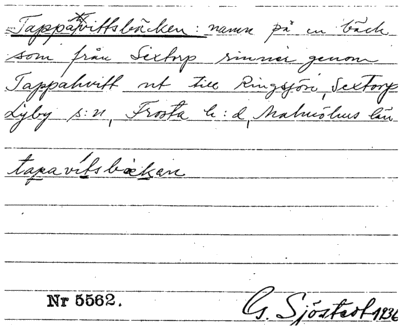 Tappahvittsbäcken: namn på en bäck
som från Sextorp rinner genom
Tappahvitt ut till Ringsjön, Sextorp
Lyby s:n, Frosta h:d, Malmöhus län
tapavitsbäkan
Nr 5562.
G. Sjöstedt 1936